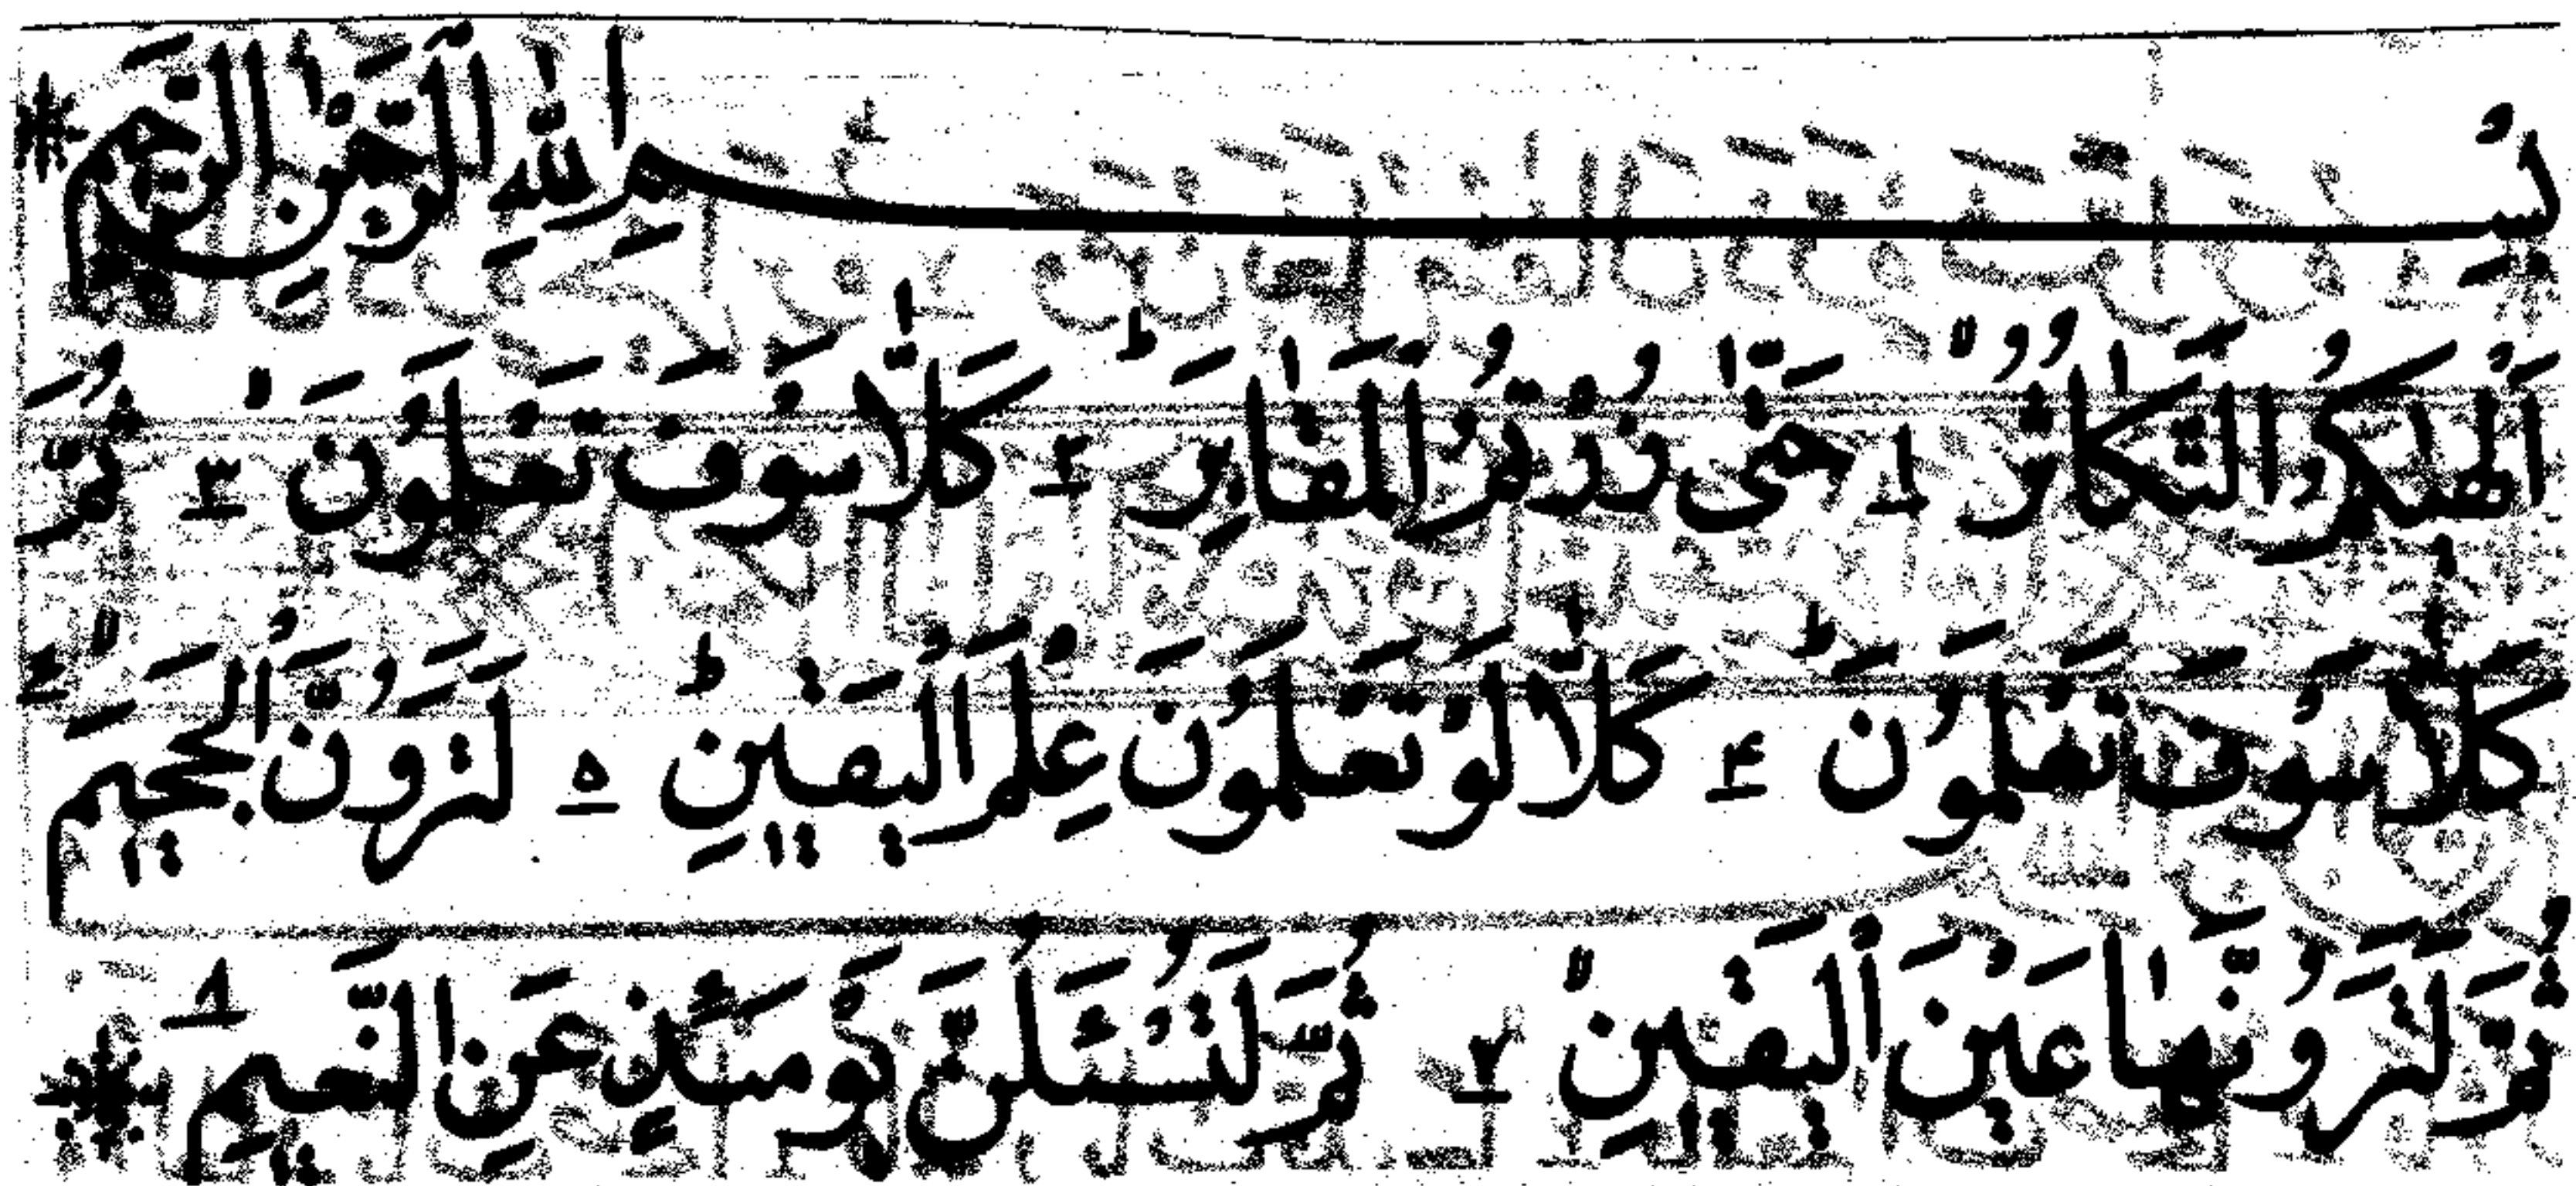 بِسْمِ اللهِ الرَّحْمٰنِ الرَّحِيْمِ *
اَلْهٰىكُمُ التَّكَاثُرُ ۙ ۱ حَتّٰى زُرْتُمُ الْمَقَابِرَ ؕ ۲ كَلَّا سَوْفَ تَعْلَمُوْنَ ۙ ۳ ثُمَّ
كَلَّا سَوْفَ تَعْلَمُوْنَ ؕ ۴ كَلَّا لَوْ تَعْلَمُوْنَ عِلْمَ الْيَقِيْنِ ؕ ۵ لَتَرَوُنَّ الْجَحِيْمَ ۙ ۶
ثُمَّ لَتَرَوُنَّهَا عَيْنَ الْيَقِيْنِ ۙ ۷ ثُمَّ لَتُسْئَلُنَّ يَوْمَئِذٍ عَنِ النَّعِيْمِ ۸ *